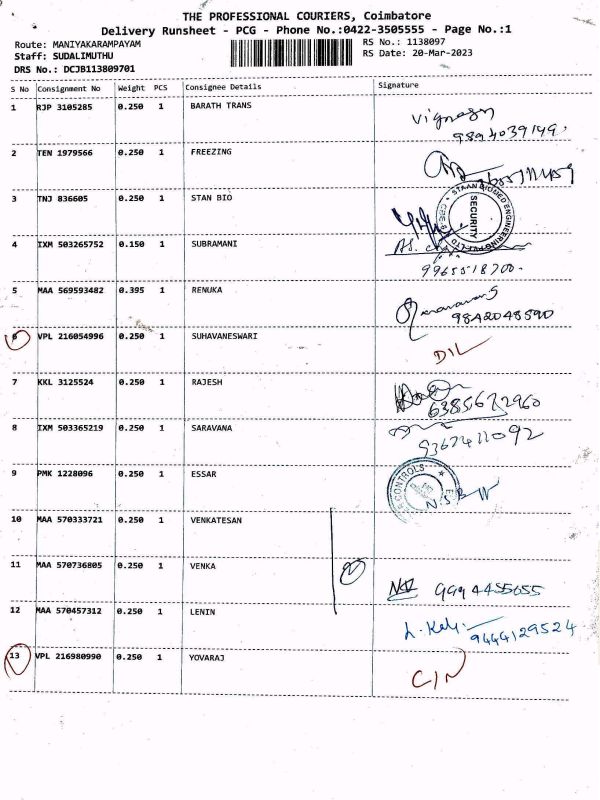 THE PROFESSIONAL COURIERS, Coimbatore
Delivery Runsheet - PCG - Phone No.:0422-3505555 - Page No.:1
Route: MANIYAKARAMPAYAM
RS No.: 1138097
Staff: SUDALIMUTHU
RS Date: 20-Mar-2023
DRS No.: DCJB113809701
S No Consignment No Weight PCS Consignee Details Signature
1 RJP 3105285 0.250 1 BARATH TRANS
vignesh
9894039149.
2 TEN 1979566 0.250 1 FREEZING
3 TNJ 836605 0.250 1 STAN BIO
STAAN BIOMED ENGINEERING PVT LTD
SECURITY
4 IXM 503265752 0.150 1 SUBRAMANI
9965518700.
5 MAA 569593482 0.395 1 RENUKA
9842048590
6 VPL 216054996 0.250 1 SUHAVANESWARI
D/L
7 KKL 3125524 0.250 1 RAJESH
6385672960
8 IXM 503365219 0.250 1 SARAVANA
9367411092
9 PMK 1228096 0.250 1 ESSAR
CONTROLS
10 MAA 570333721 0.250 1 VENKATESAN
11 MAA 570736805 0.250 1 VENKA
2
9994455655
12 MAA 570457312 0.250 1 LENIN
9444129524
13 VPL 216980990 0.250 1 YOVARAJ
C/N